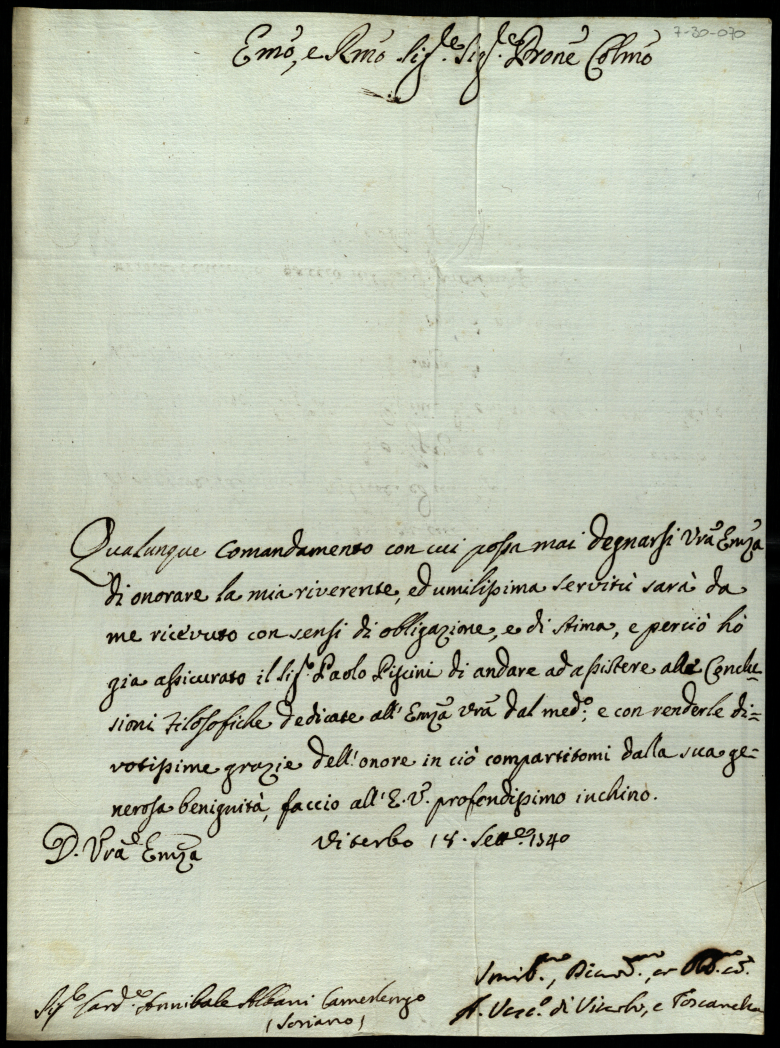 7-30-070
Emo, e Rmo Sig.re Sig.re Prone Colmo
Qualunque Comandamento con cui possa mai degnarsi Vra Emza
di onorare la mia riverente, ed umilissima servitù sarà da
me ricevuto con sensi di obligazione, e di stima, e perciò hò
gia assicurato il Sig.r Paolo Piscini di andare ad assistere alle Conclu=
sioni Filosofiche dedicate all' Emza Vra dal med.o; e con renderle di=
votissime grazie dell' onore in ciò compartitomi dalla sua ge=
nerosa benignità, faccio all' E. V. profondissimo inchino.
D. Vra Emza Viterbo 18. Sett.e 1740
Sig.r Card.e Annibale Albani Camerlengo
(Soriano)
A. Vesc.o di Viterbo, e Toscanella